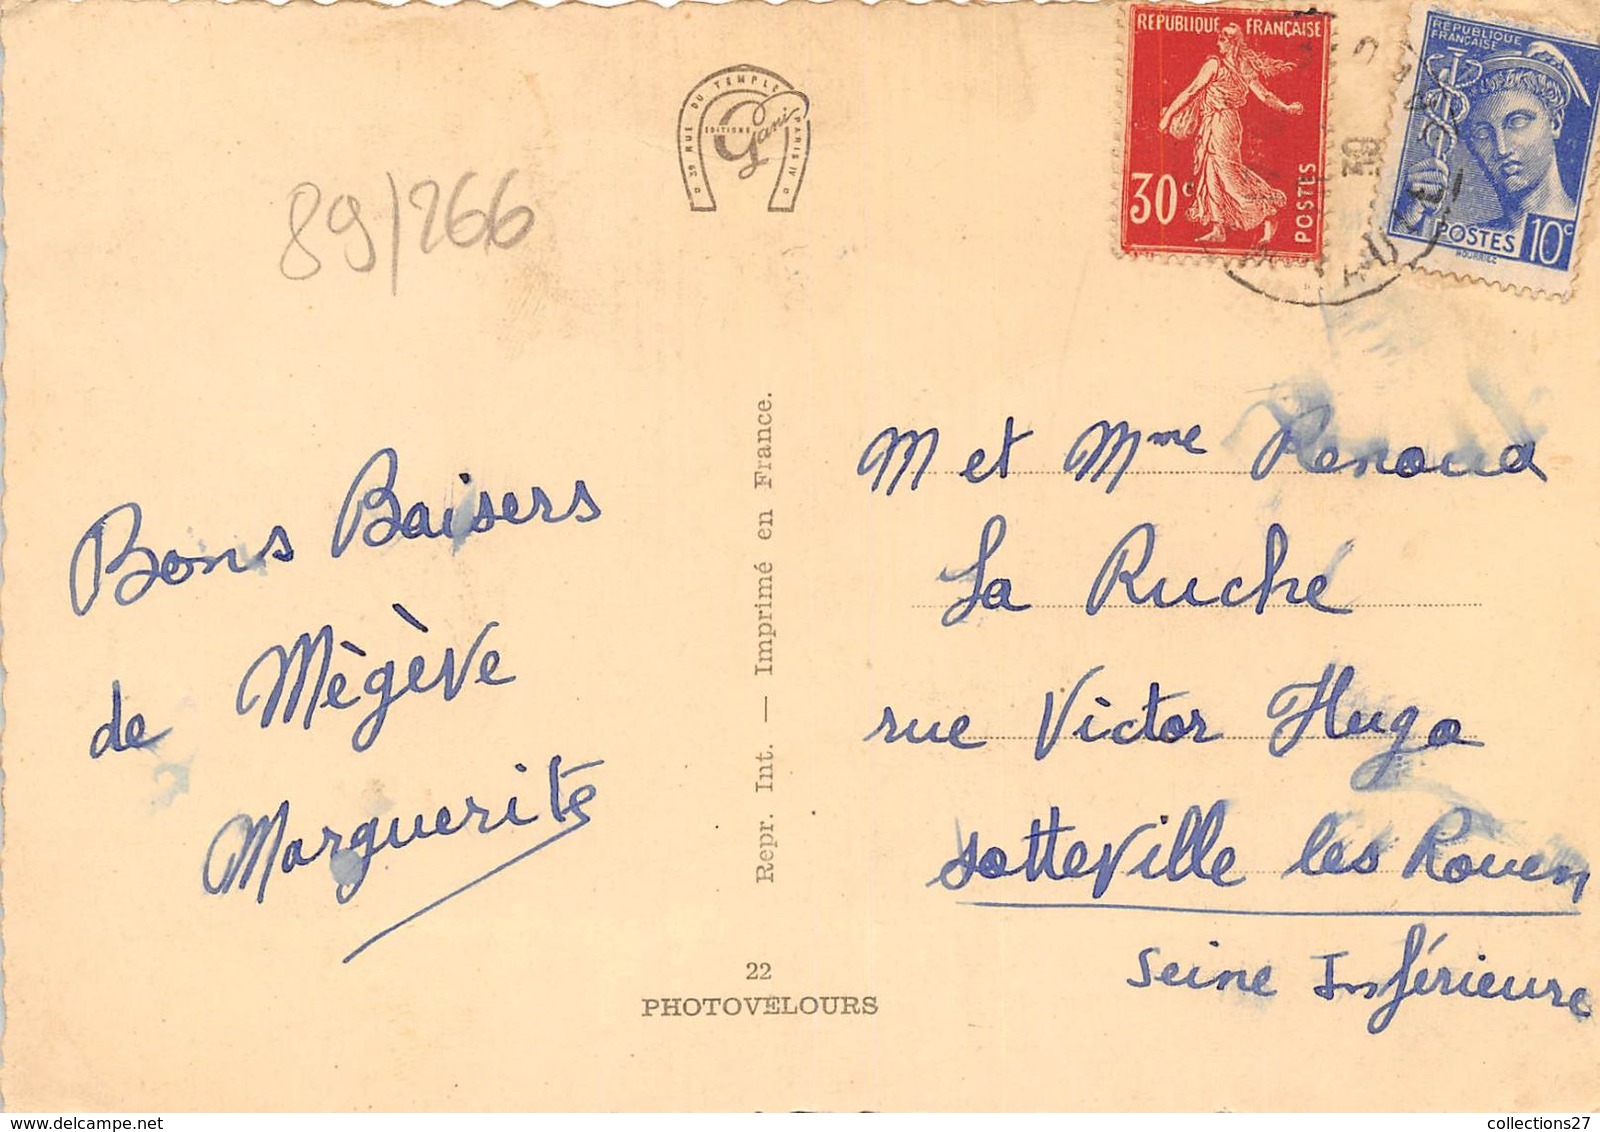 RÉPUBLIQUE FRANÇAISE
30c
POSTES
RÉPUBLIQUE
FRANÇAISE
POSTES 10c
39
39 RUE DU TEMPLE PARIS IV
EDITIONS
Gani
89/266
Bons Baisers
de Mègève
Marguerite
Repr. Int. — Imprimé en France.
22
PHOTOVELOURS
M et Mme Renoud
La Ruche
rue Victor Hugo
Sotteville les Rouen
Seine Inférieure
collections27